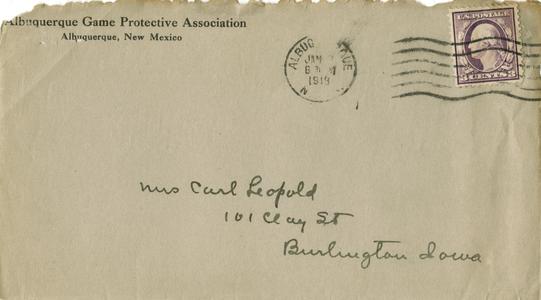 Albuquerque Game Protective Association
Albuquerque, New Mexico
ALBUQ UE
JAN
1919
N
U.S. POSTAGE
3 CENTS 3
Mrs Carl Leopold
101 Clay St
Burlington Iowa